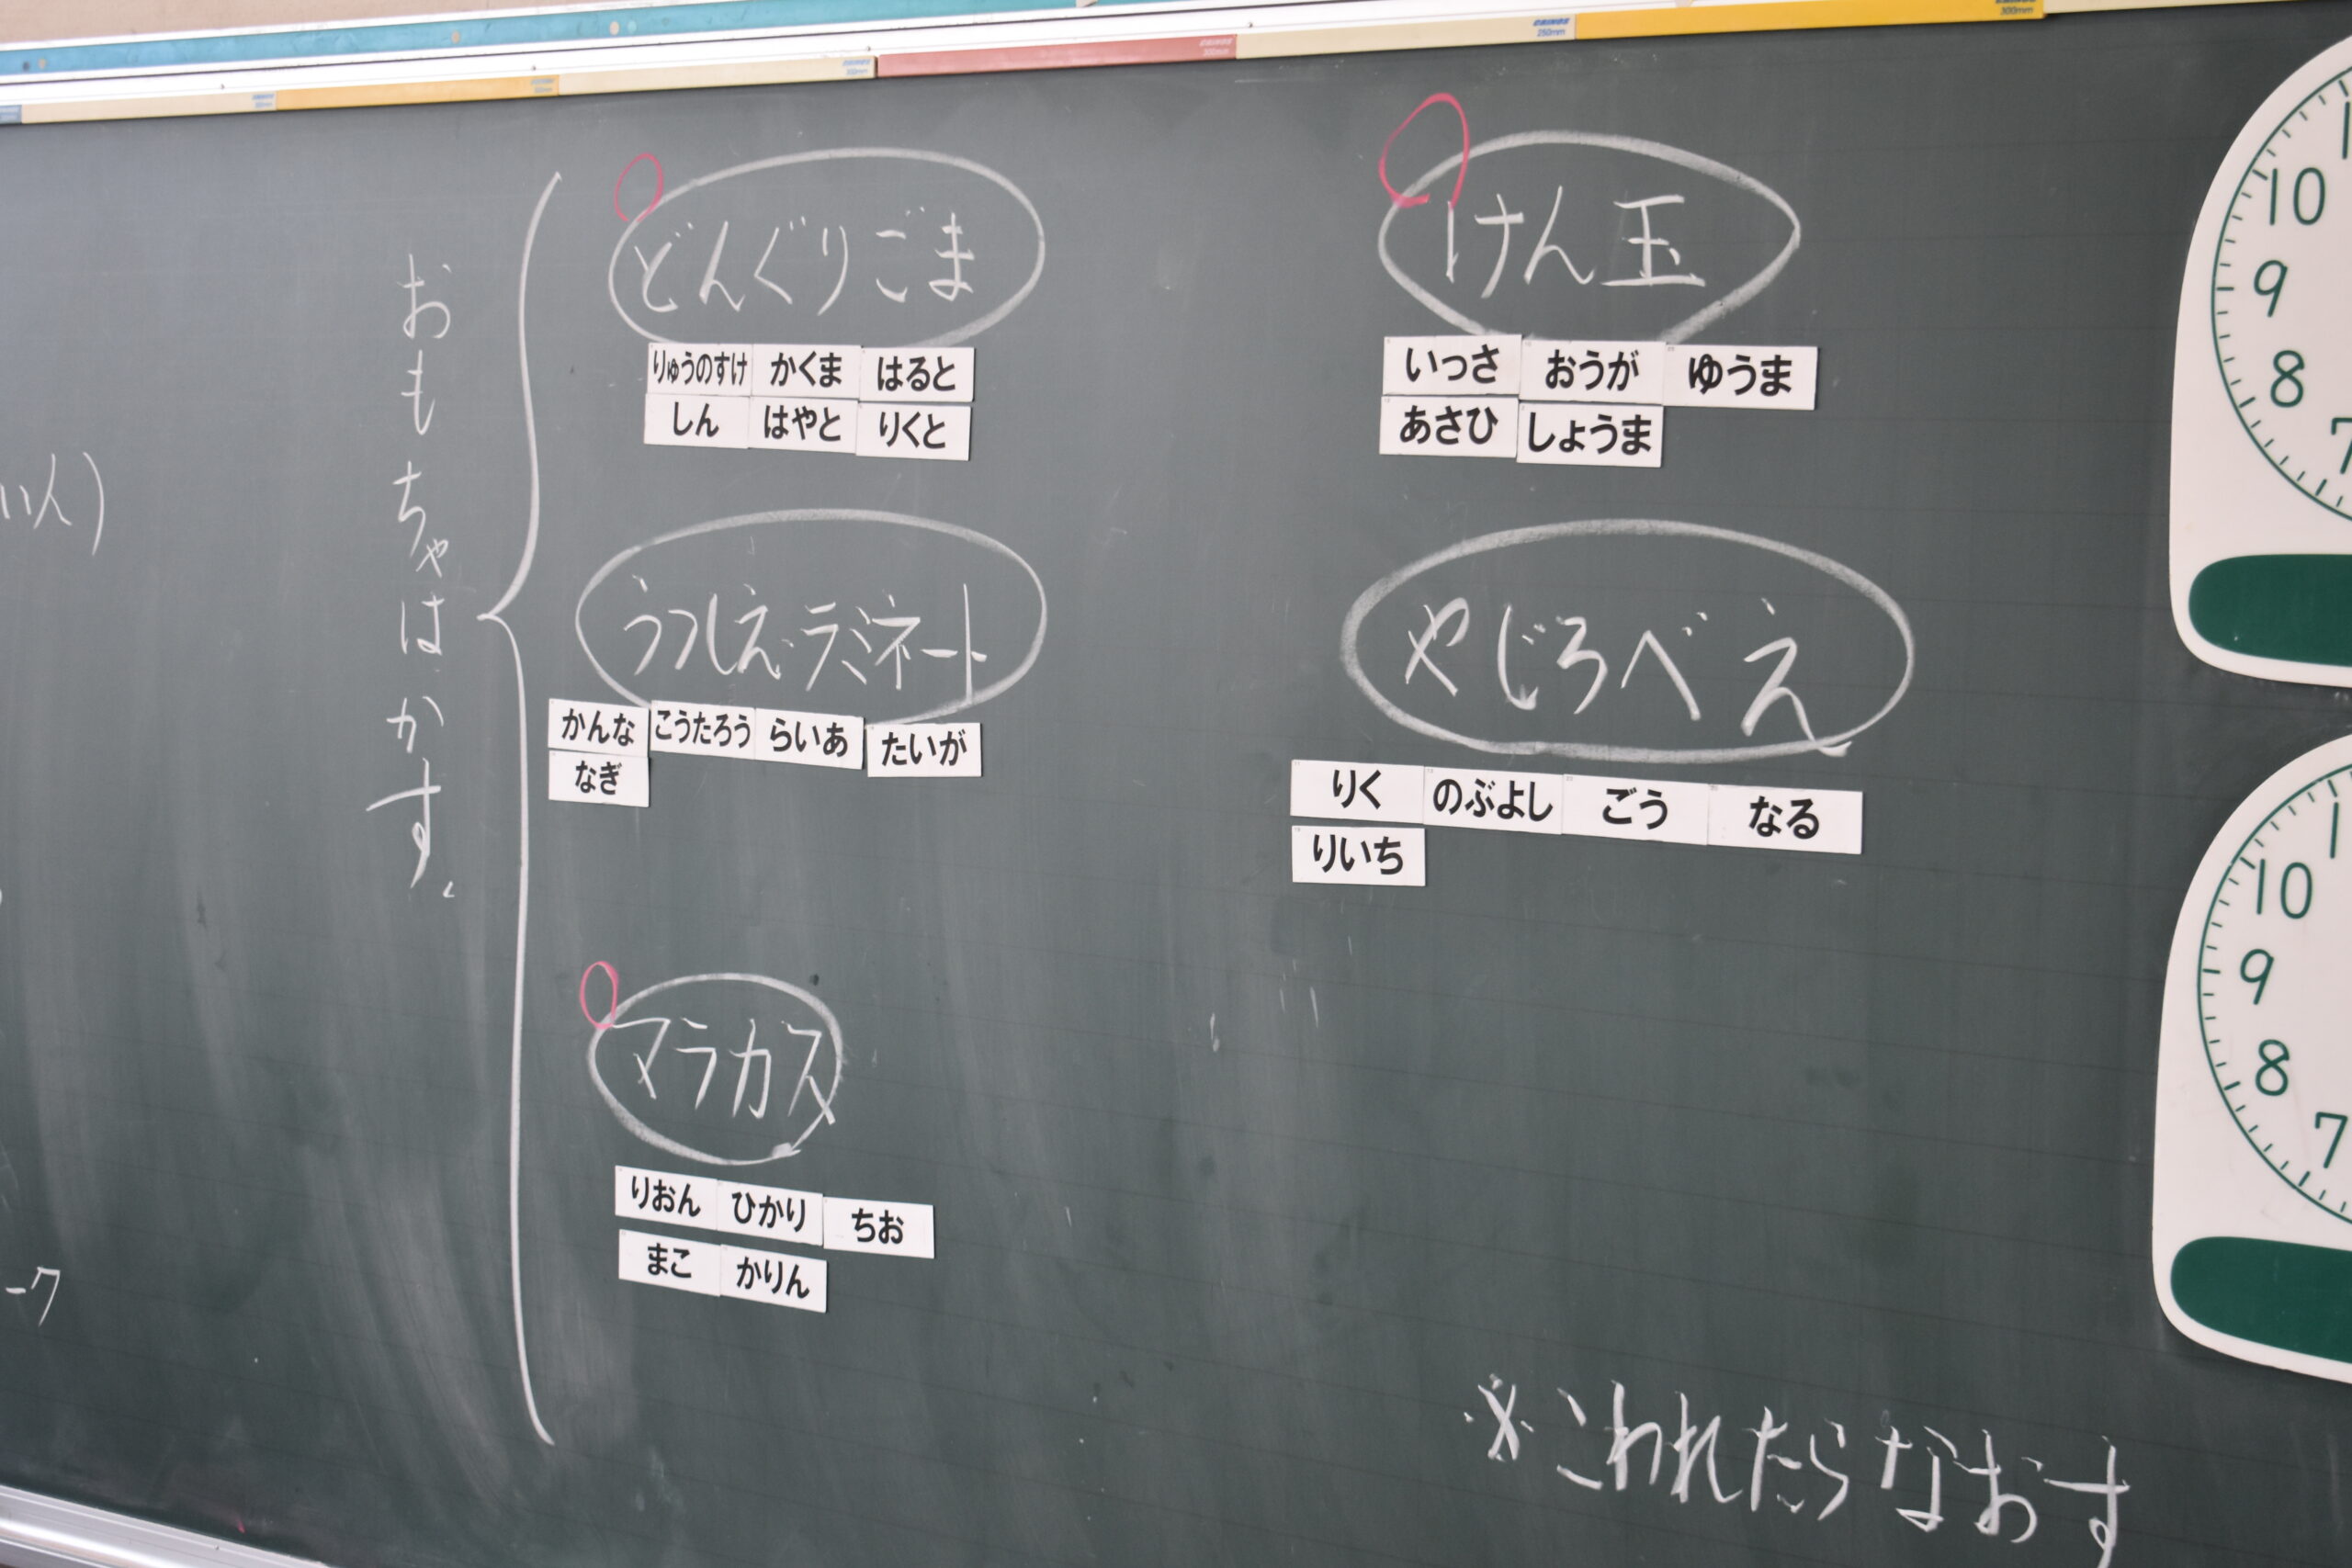 おもちゃはかす。
どんぐりごま
りゅうのすけ かくま はると
しん はやと りくと
うつしえ・ラミネート
かんな こうたろう らいあ たいが
なぎ
マラカス
りおん ひかり ちお
まこ かりん
けん玉
いっさ おうが ゆうま
あさひ しょうま
やじろべえ
りく のぶよし ごう なる
りいち
※こわれたらなおす
10
9
8
7
10
9
8
7